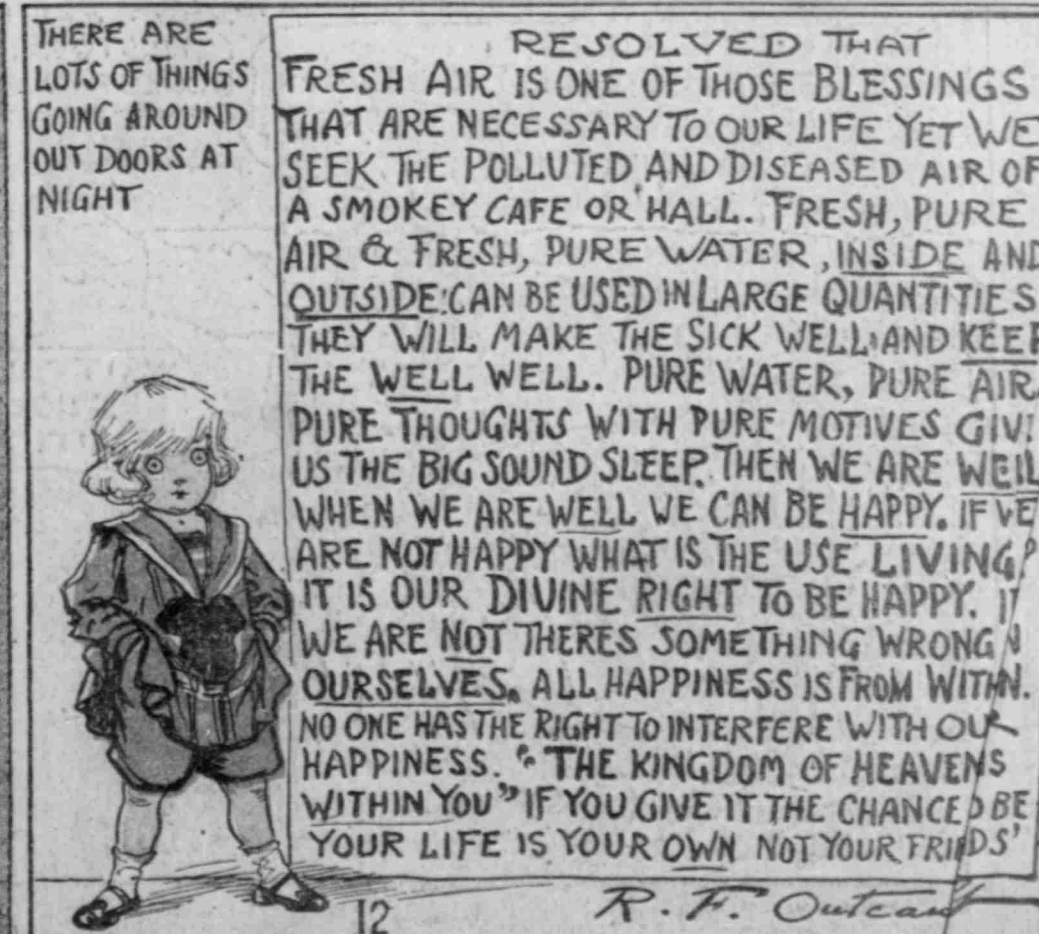 THERE ARE
LOTS OF THINGS
GOING AROUND
OUT DOORS AT
NIGHT
RESOLVED THAT
FRESH AIR IS ONE OF THOSE BLESSINGS
THAT ARE NECESSARY TO OUR LIFE YET WE
SEEK THE POLLUTED AND DISEASED AIR OF
A SMOKEY CAFE OR HALL. FRESH, PURE
AIR & FRESH, PURE WATER, INSIDE AND
OUTSIDE: CAN BE USED IN LARGE QUANTITIES
THEY WILL MAKE THE SICK WELL AND KEEP
THE WELL WELL. PURE WATER, PURE AIR.
PURE THOUGHTS WITH PURE MOTIVES GIV
US THE BIG SOUND SLEEP. THEN WE ARE WELL
WHEN WE ARE WELL WE CAN BE HAPPY. IF WE
ARE NOT HAPPY WHAT IS THE USE LIVING?
IT IS OUR DIVINE RIGHT TO BE HAPPY.
WE ARE NOT THERES SOMETHING WRONG
OURSELVES. ALL HAPPINESS IS FROM WITHN.
NO ONE HAS THE RIGHT TO INTERFERE WITH OUR
HAPPINESS. "THE KINGDOM OF HEAVENS
WITHIN YOU" IF YOU GIVE IT THE CHANCE BE
YOUR LIFE IS YOUR OWN NOT YOUR
12
R. F. Outcault